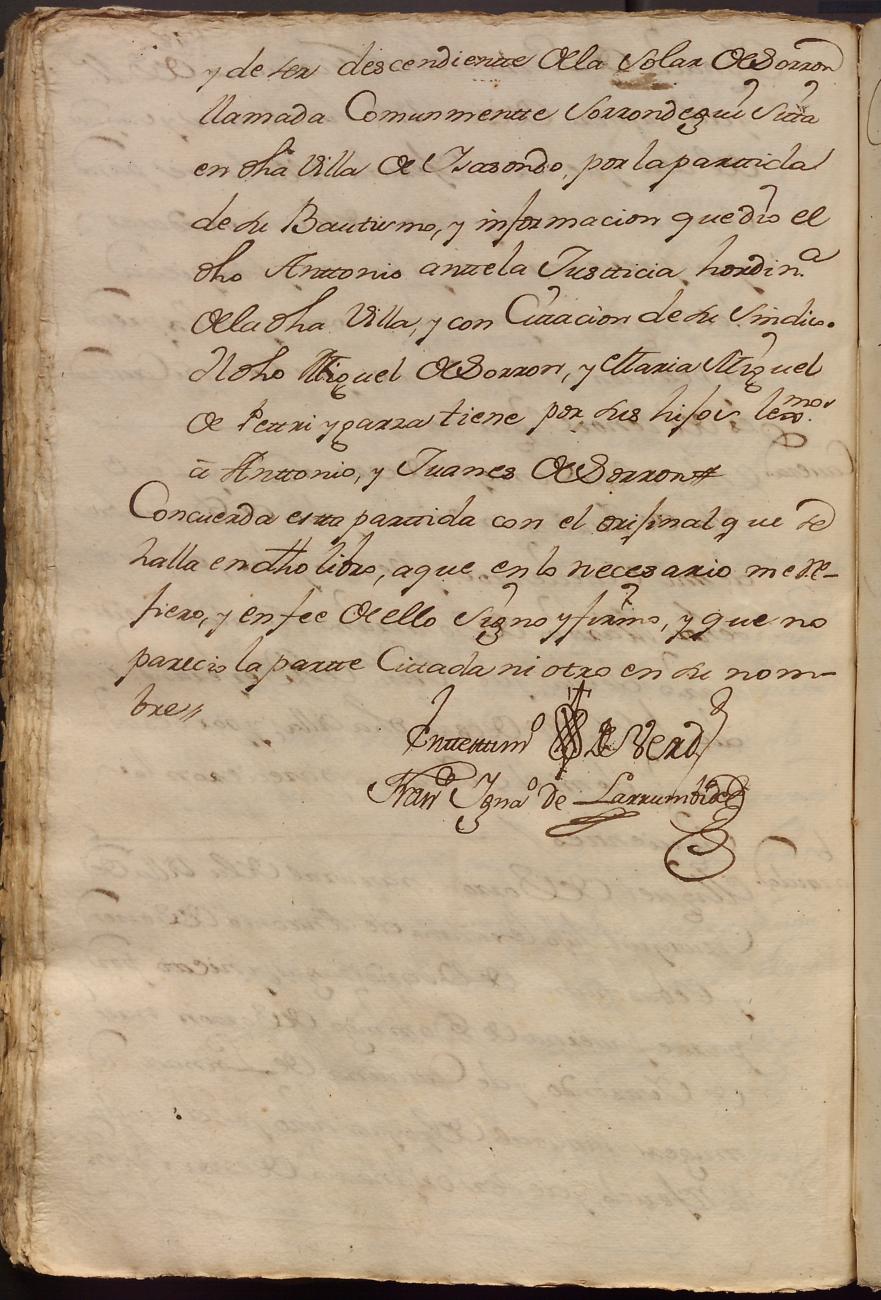 y de ser descendiente de la Solar de Sorron
llamada Comunmentte Sorrondegui Sitta
en dha Villa de Isasondo, por la parttida
de su Bautismo, y informacion que dio el
dho Anttonio antte la Justticia hordin.ª
de la dha Villa, y con Cittacion de su Sindico.
El dho Miguel de Sorron, y Maria Miguel
de Pettriygarza tiene por sus hijos lexmos.
â Anttonio, y Juanes de Sorron#
Concuerda estta parttida con el orijinal que se
halla en dho libro, a que en lo necesario me re-
fiero, y en fee de ello Signo y firmo, y que no
parecio la partte Cittada ni otro en su nom-
bre//
En ttesttimº de Verd
Franº Ignaº de Larrumbide